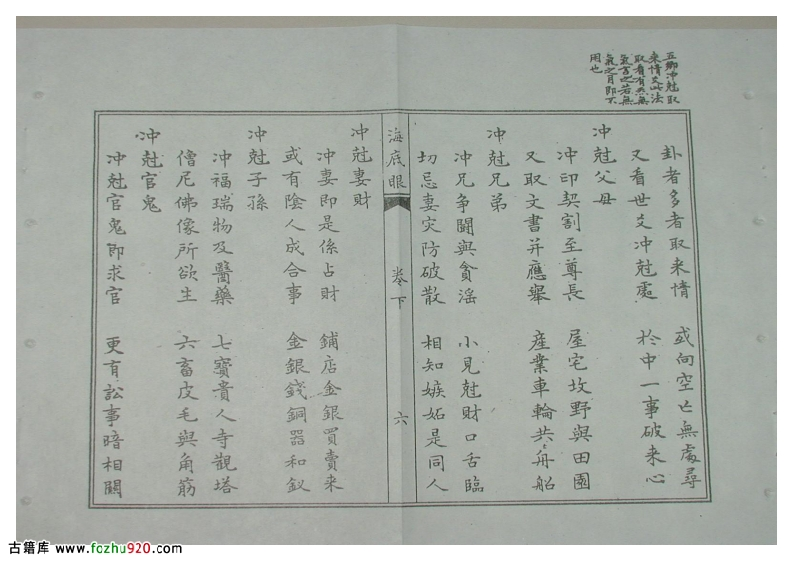 五鄉冲尅取
来情爻此法
取看有炁無
炁言之若無
炁之月即不
用也
卦者多者取来情　或向空亡無處尋
又看世爻冲尅處　於中一事破来心
冲尅父母
冲印契割至尊長　屋宅坟野與田園
又取文書并應舉　産業車輪共舟船
冲尅兄弟
冲兄争鬪與貪滛　小見尅財口舌臨
切忌妻灾防破散　相知嫉妬是同人
海底眼　卷下　六
冲尅妻財
冲妻即是係占財　鋪店金銀買賣来
或有陰人成合事　金銀錢銅器和釵
冲尅子孫
冲福瑞物及醫藥　七寳貴人寺觀塔
僧尼佛像所欲生　六畜皮毛與角筋
冲尅官鬼
冲尅官鬼即求官　更有訟事暗相關
古籍库 www.fozhu920.com